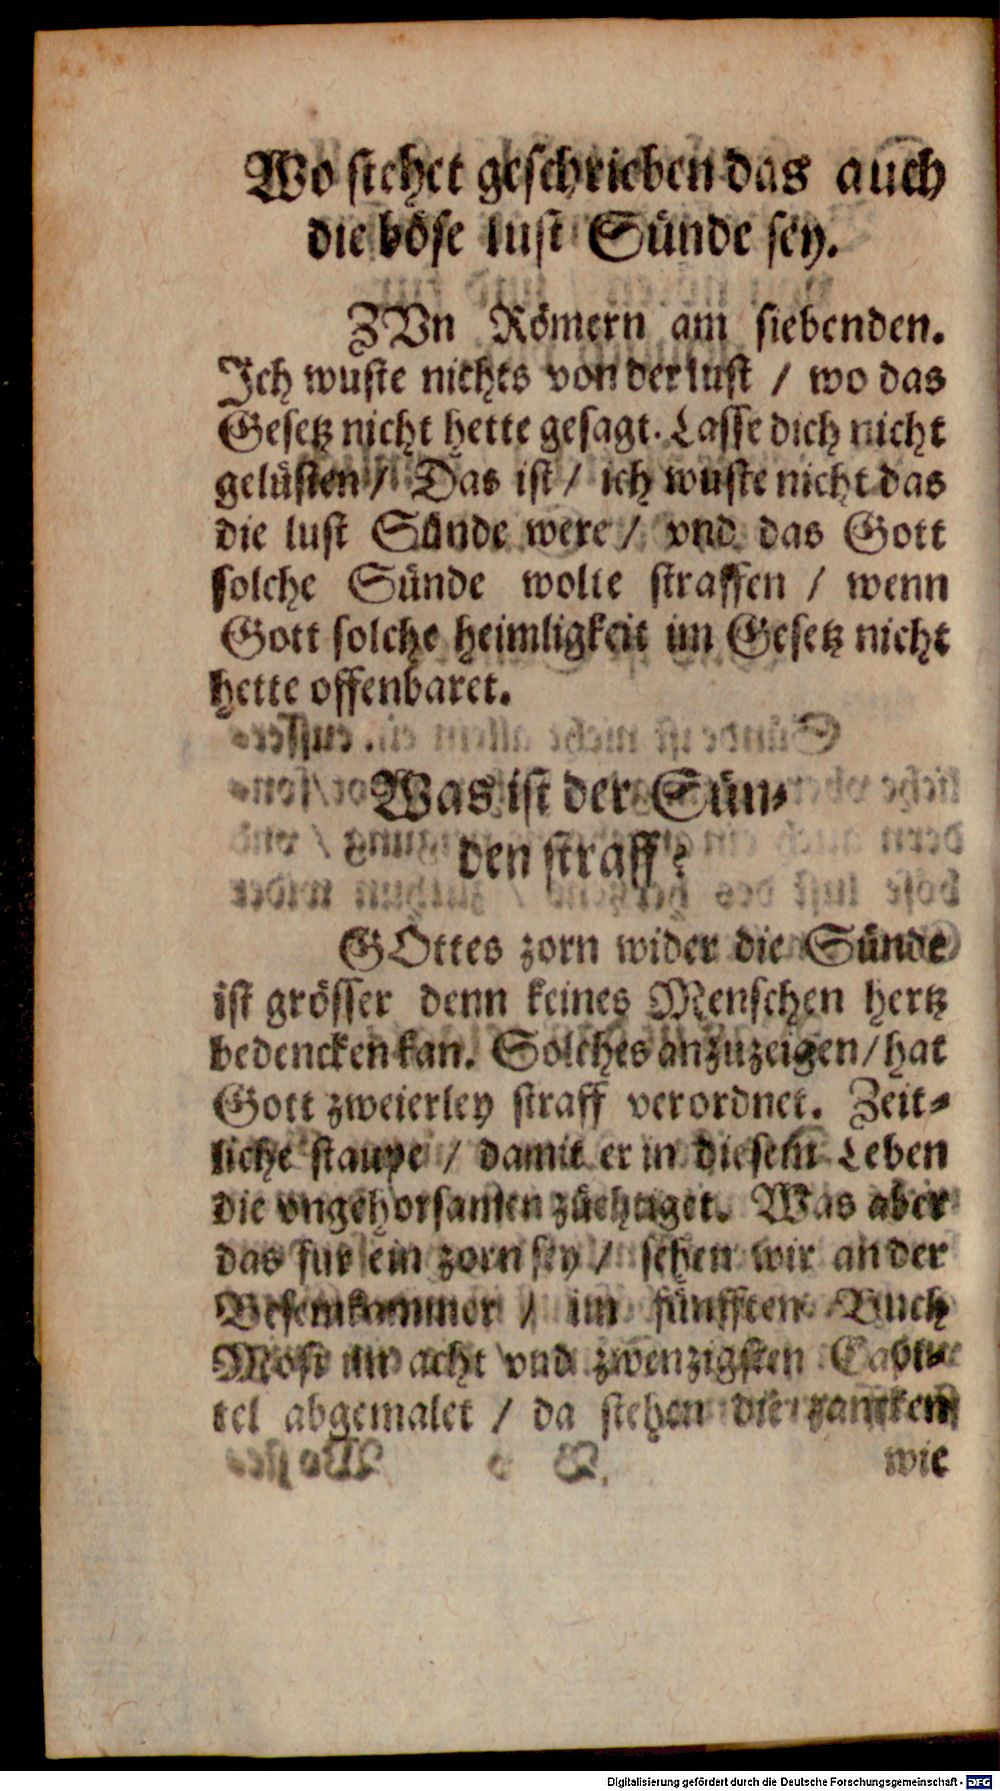 Wo stehet geschrieben das auch
die böse lust Sünde sey.
ZVn Römern am siebenden.
Ich wuste nichts von der lust / wo das
Gesetz nicht hette gesagt. Lasse dich nicht
gelüsten / Das ist / ich wuste nicht das
die lust Sünde were / vnd das Gott
solche Sünde wolte straffen / wenn
Gott solche heimligkeit im Gesetz nicht
hette offenbaret.
Was ist der Sün-
den straff?
GOttes zorn wider die Sünde
ist grösser denn keines Menschen hertz
bedencken kan. Solches anzuzeigen / hat
Gott zweierley straff verordnet. Zeit-
liche staupe / damit er in diesem Leben
die vngehorsamen züchtiget. Was aber
das fur ein zorn sey / sehen wir an der
/ im fünfften Buch
Mose im acht vnd zwenzigsten Capi-
tel abgemalet / da stehen die
wie
Digitalisierung gefördert durch die Deutsche Forschungsgemeinschaft - DFG